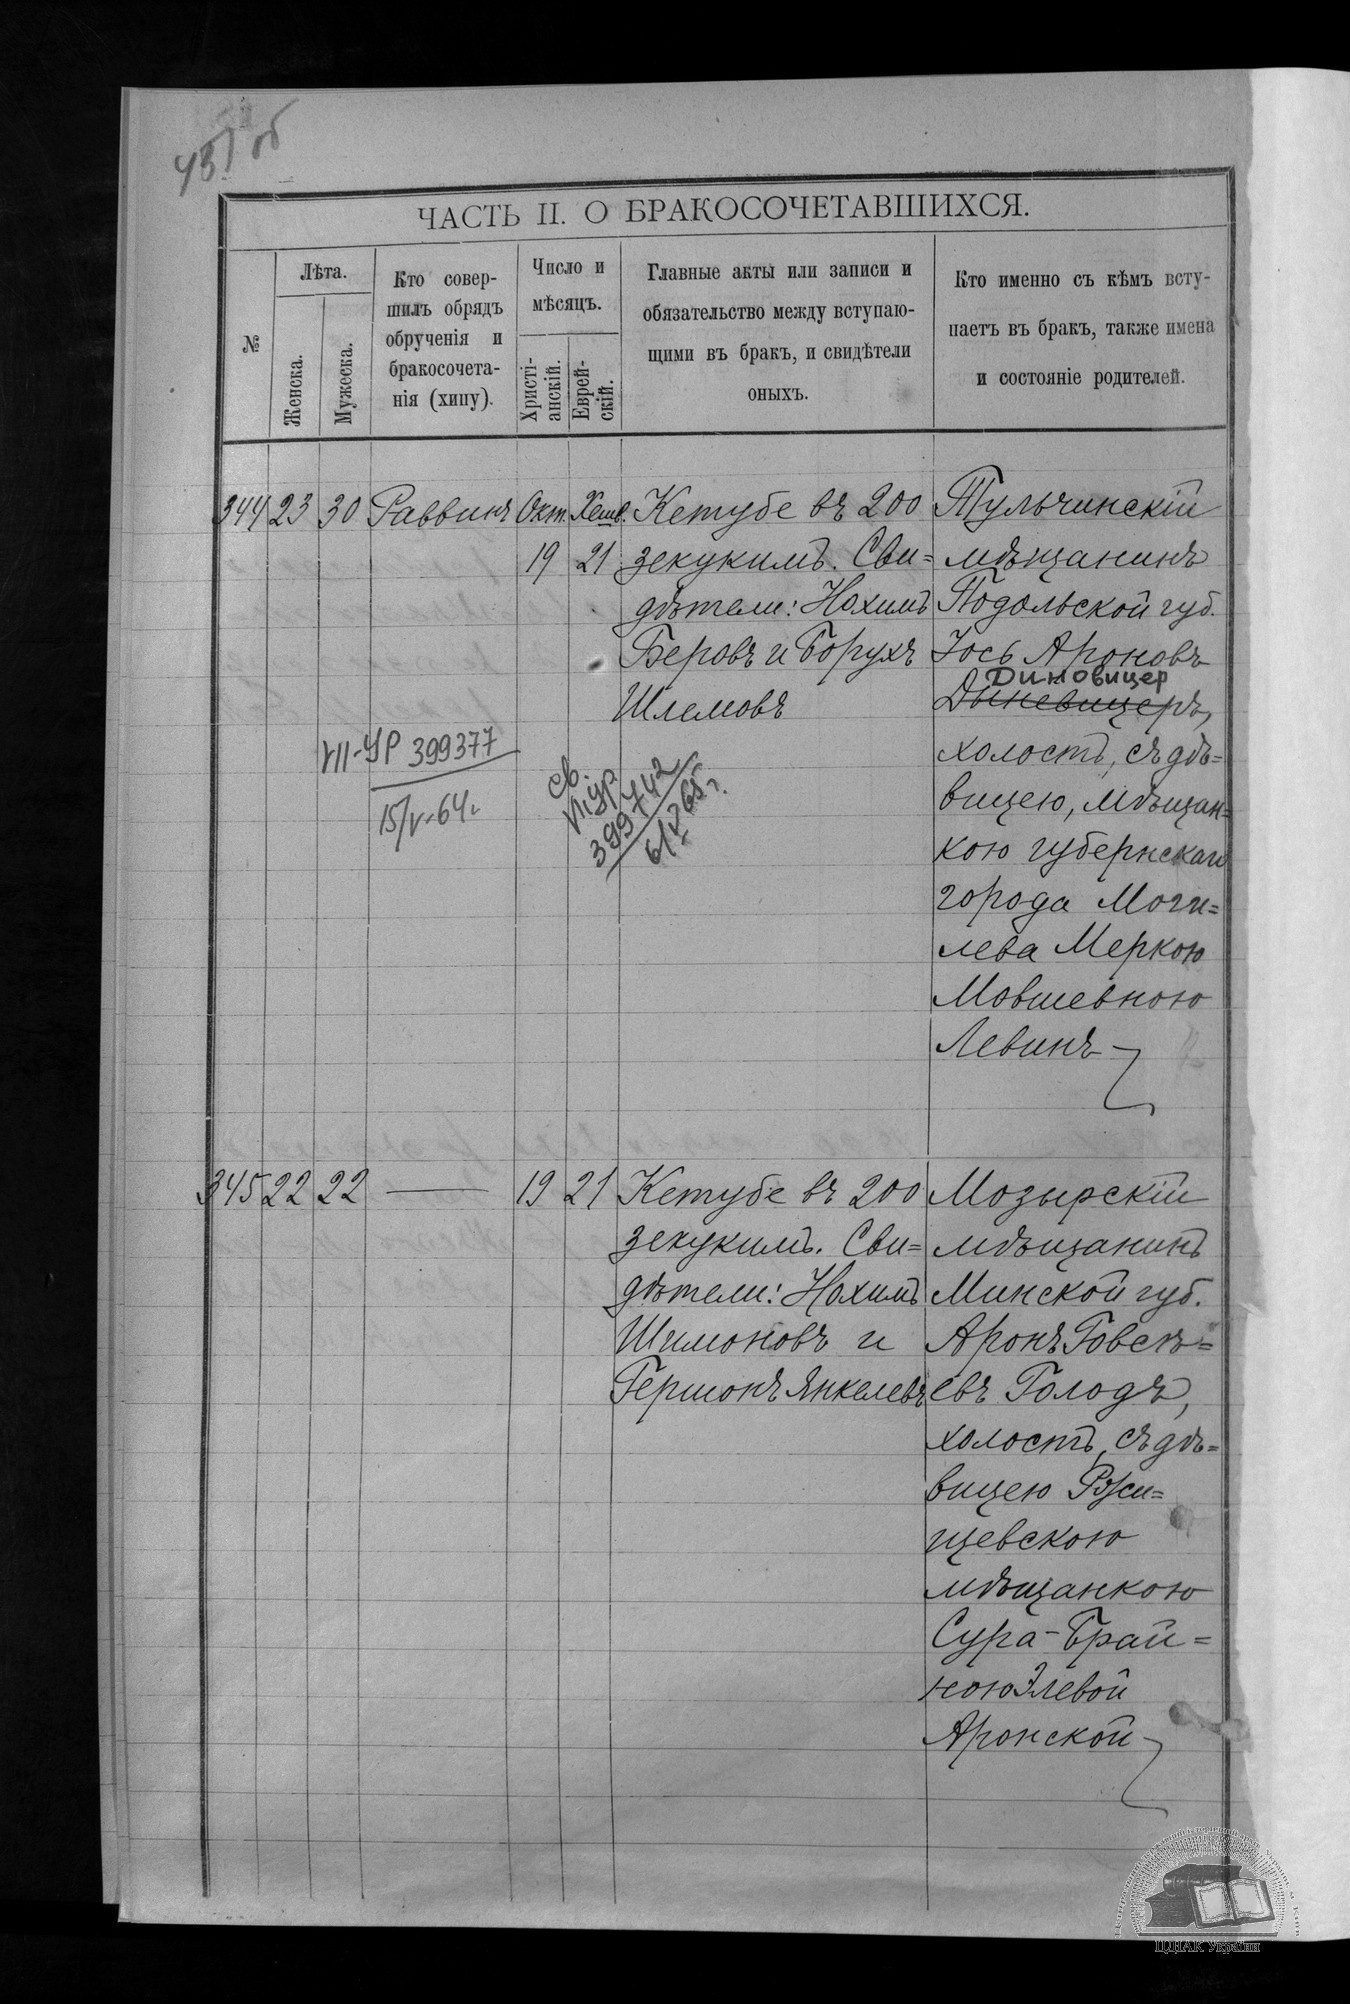 451 об
ЧАСТЬ II. О БРАКОСОЧЕТАВШИХСЯ.
№
Лѣта.
Женска.
Мужеска.
Кто совер-
шилъ обрядъ
обрученія и
бракосочета-
нія (хипу).
Число и
мѣсяцъ.
Христі-
анскій.
Еврей-
скій.
Главные акты или записи и
обязательство между вступаю-
щими въ бракъ, и свидѣтели
оныхъ.
Кто именно съ кѣмъ всту-
паетъ въ бракъ, также имена
и состояніе родителей.
344 23 30 Раввинъ Окт. Хешв.
19 21
Кетубе въ 200
зекукимъ. Сви=
дѣтели: Нохимъ
Беровъ и Борухъ
Шлемовъ
Тульчинскій
мѣщанинъ
Подольской губ.
Іось Ароновъ
Диновицер
Дыневицеръ,
холостъ, съ дѣ=
вицею, мѣщан=
кою губернскаго
города Моги=
лева Меркою
Мовшевною
Левинъ
VII-УР 399377
15/V-64г
св.
VII УР
399742
345 22 22 — 19 21
Кетубе въ 200
зекукимъ. Сви=
дѣтели: Нохимъ
Шимоновъ и
Гершонъ Янкелевъ
Мозырскій
мѣщанинъ
Минской губ.
Аронъ Говсѣ=
евъ Голодъ,
холостъ, съ дѣ=
вицею Ржи=
щевскою
мѣщанкою
Сура-Брай=
ною Элевой
Аронской
ЦДІАК України